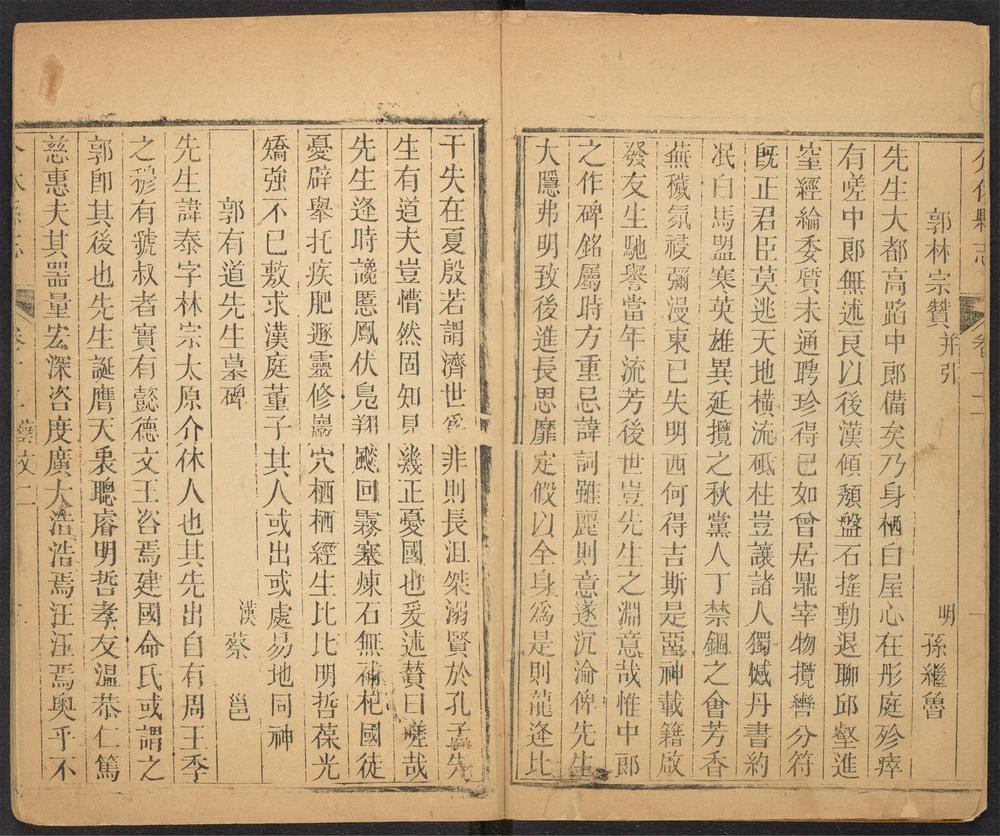 介休縣志 卷十二
郭林宗贊并引 明 孫繼魯
先生大都高蹈中郎備矣乃身栖白屋心在彤庭殄瘁
有嗟中郎無述艮以後漢傾頹盤石搖動退聊邱壑進
窒經綸委質未通聘珍得已如曾居鼎宰物攬轡分符
旣正君臣莫逃天地橫流砥柱豈讓諸人獨憾丹書約
泯白馬盟寒英雄異延攬之秋黨人丁禁錮之會芳香
蕪穢氛祲彌漫東已失明西何得吉斯是惡神載籍啟
發友生馳譽當年流芳後世豈先生之淵意哉惟中郎
之作碑銘屬時方重忌諱詞雖麗則意遂沉淪俾先生
大隱弗明致後進長思靡定假以全身爲是則龍逢比
干失在夏殷若謂濟世爲非則長沮桀溺賢於孔孟先
生有道夫豈懵然固知見幾正憂國也爰述贊曰嗟哉
先生逢時讒慝鳳伏鳧翔飈回霧塞煉石無補杞國徒
憂辟舉托疾肥遯靈修巖穴栖栖經生比比明哲葆光
矯強不已敷求漢庭董子其人或出或處易地同神
郭有道先生墓碑 漢 蔡 邕
先生諱泰字林宗太原介休人也其先出自有周王季
之穆有虢叔者實有懿德文王咨焉建國命氏或謂之
郭卽其後也先生誕膺天衷聰睿明哲孝友溫恭仁篤
慈惠夫其器量宏深咨度廣大浩浩焉汪汪焉奧乎不
介休縣志 卷十二 藝文